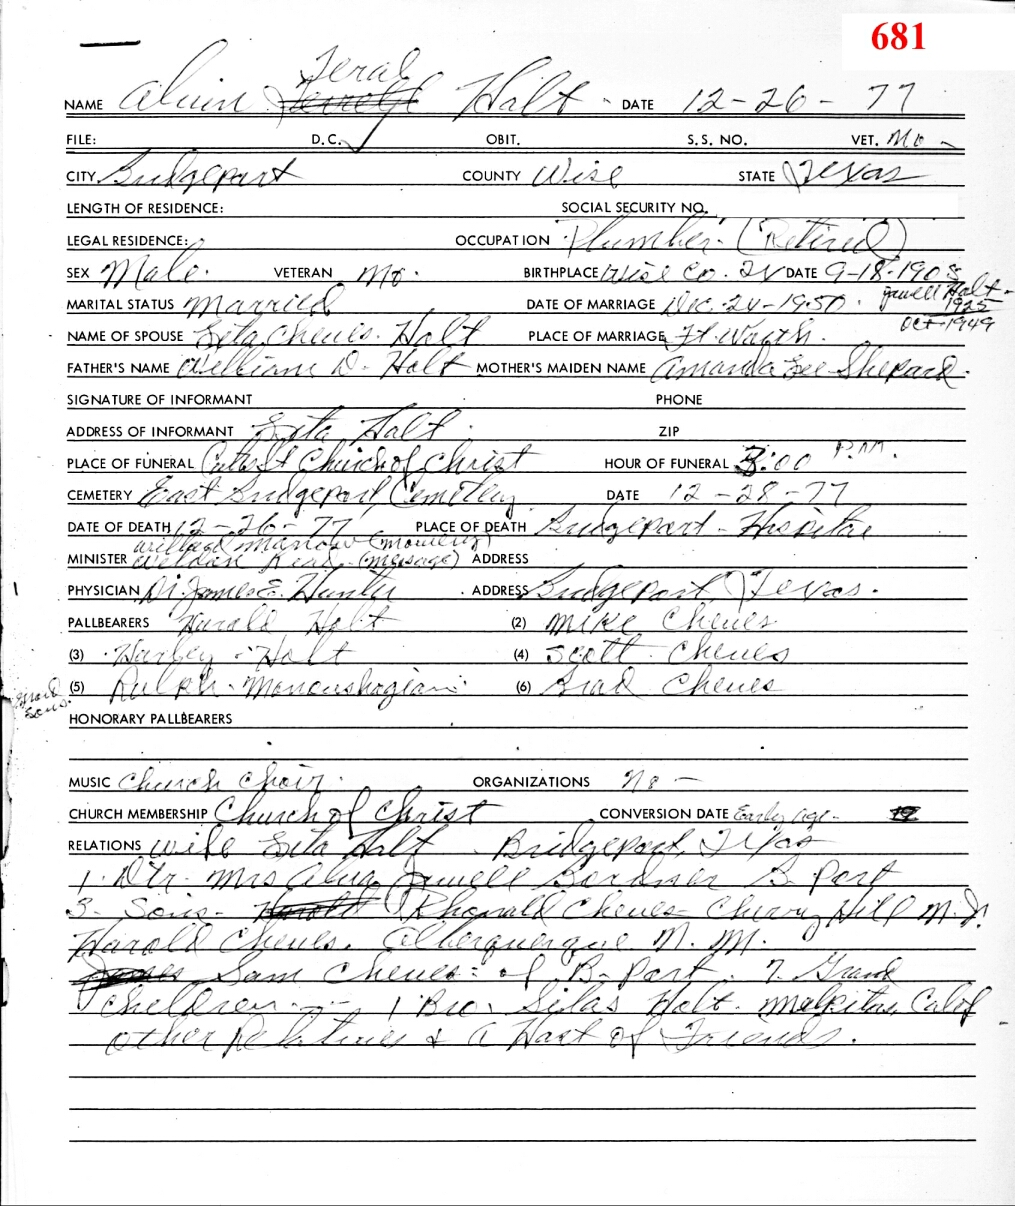 681
Teral
NAME Alvin Holt DATE 12-26-77
FILE: D.C. OBIT. S.S. NO. VET. No
CITY Bridgeport COUNTY Wise STATE Texas
LENGTH OF RESIDENCE: SOCIAL SECURITY NO.
LEGAL RESIDENCE: OCCUPATION Plumber (Retired)
SEX Male. VETERAN No. BIRTHPLACE Wise Co. TX DATE 9-18-1908
MARITAL STATUS Married DATE OF MARRIAGE Dec. 24-1950. Jewell Holt-
1925
Oct-1949
NAME OF SPOUSE Leta Cheves Holt PLACE OF MARRIAGE Ft. Worth.
FATHER'S NAME William D. Holt MOTHER'S MAIDEN NAME Amanda Lee Shepard.
SIGNATURE OF INFORMANT PHONE
ADDRESS OF INFORMANT Leta Holt. ZIP
PLACE OF FUNERAL Church of Christ HOUR OF FUNERAL 3:00 P.M.
CEMETERY East Bridgeport Cemetery DATE 12-28-77
DATE OF DEATH 12-26-77 PLACE OF DEATH Bridgeport-Hospital
(memory)
MINISTER (message) ADDRESS
PHYSICIAN Dr. James E. Hunter ADDRESS Bridgeport, Texas.
PALLBEARERS Harold Holt (2) Mike Cheves
(3) Harley Holt (4) Scott Cheves
(5) Ralph (6) Brad Cheves
Grand
Sons.
HONORARY PALLBEARERS
MUSIC Church Choir. ORGANIZATIONS No -
CHURCH MEMBERSHIP Church of Christ CONVERSION DATE Early age- 19
RELATIONS Wife Leta Holt Bridgeport, Texas
1. Dtr. Mrs Jewell B. Port
3- Sons- Rhonald Cheves Cherry Hill N.J.
Harold Cheves. Alberquerque N.M.
Sam Cheves- of B-Port. 7. Grand
Children -- 1 Bro. Silas Holt. Melpitas, Calif
other Relatives & A Host of Friends.